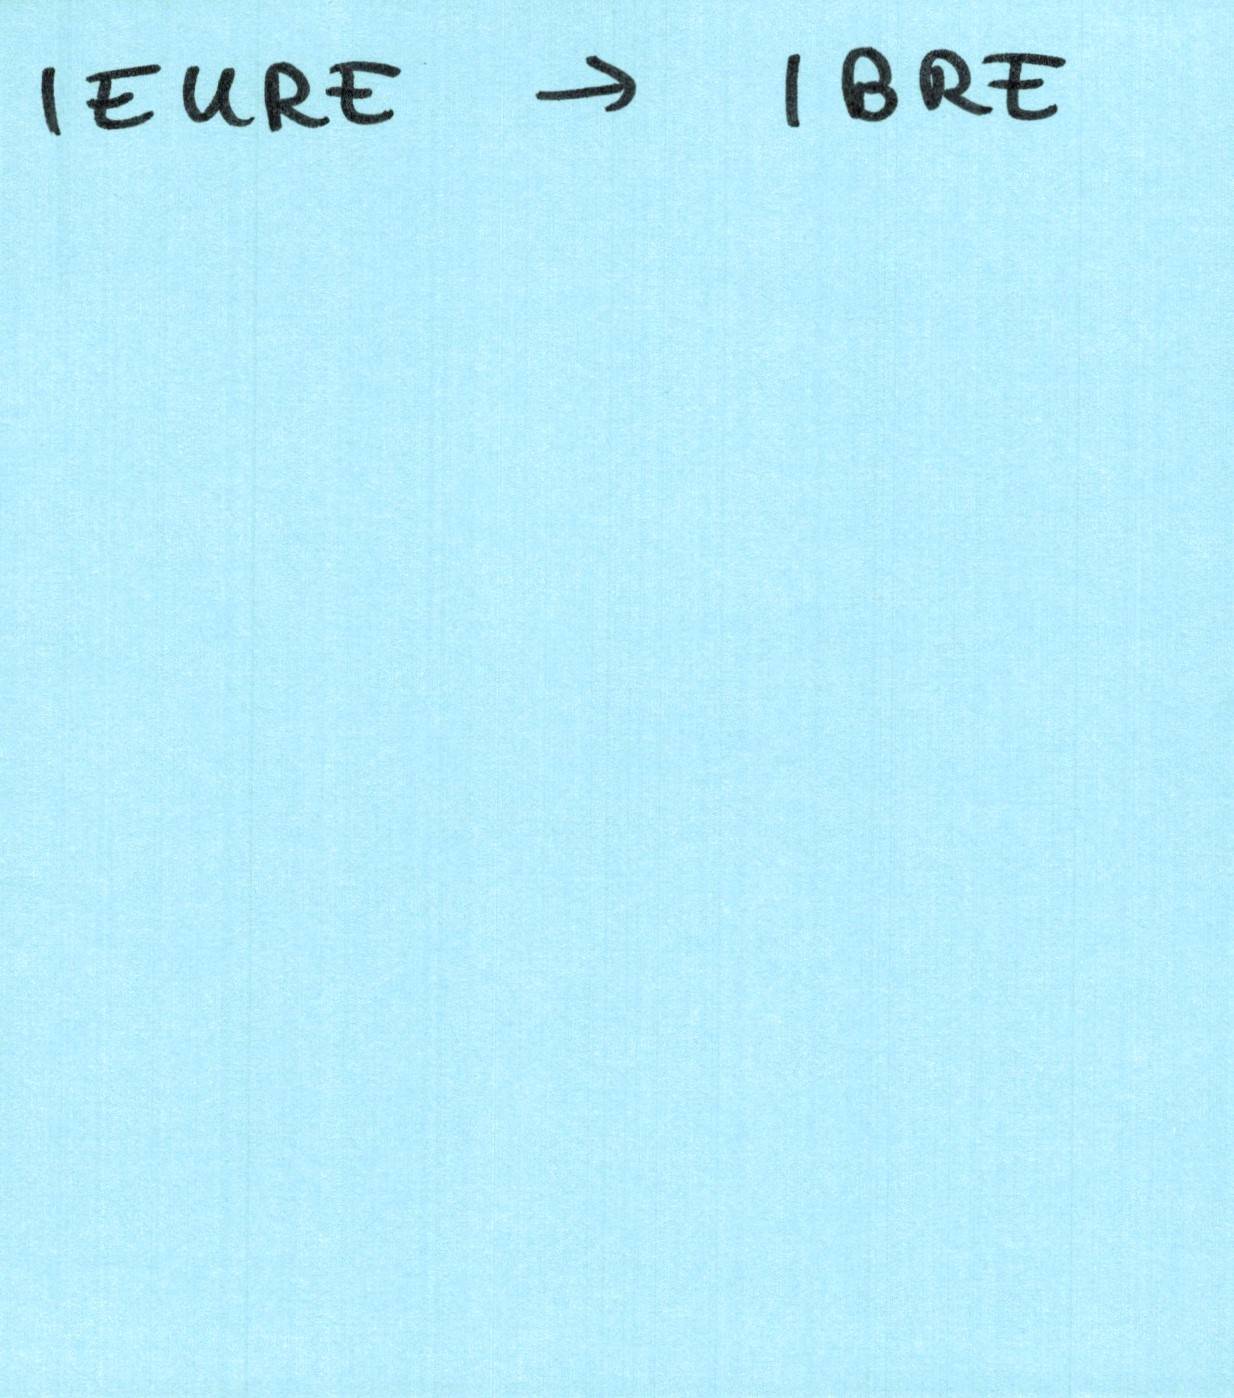 IEURE → IBRE